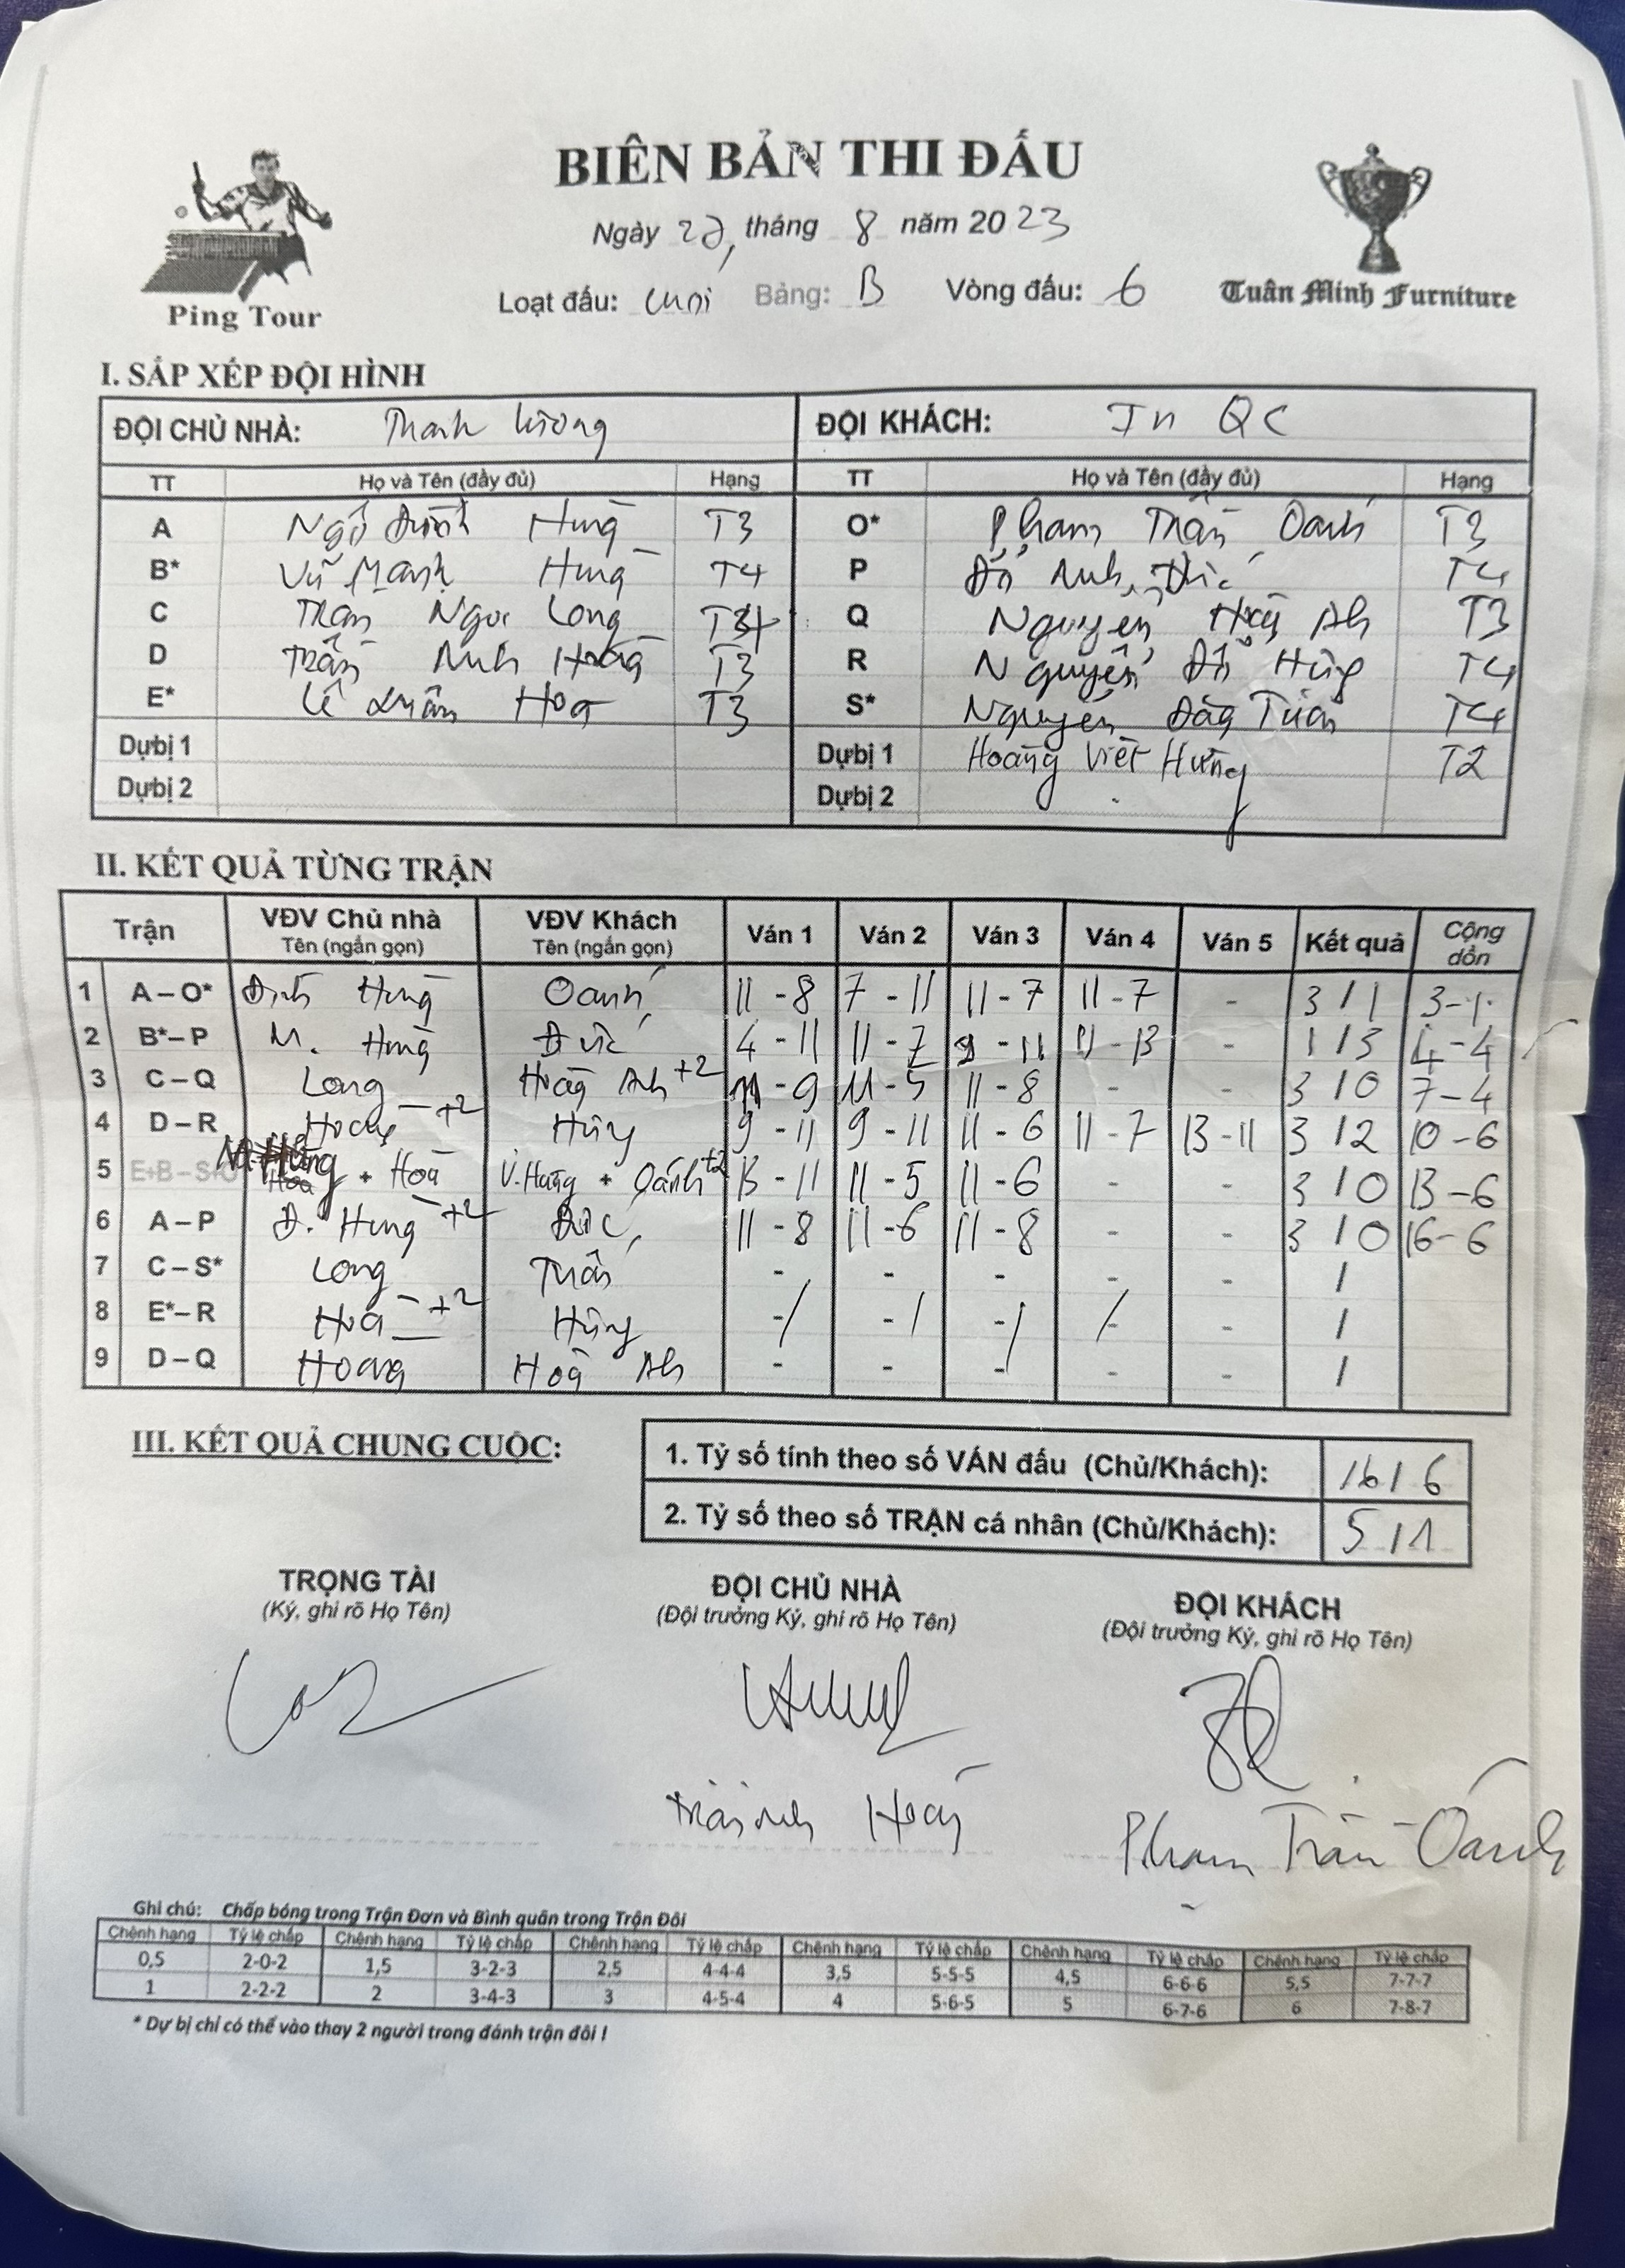 BIÊN BẢN THI ĐẤU
Ngày 27, tháng 8 năm 2023
Ping Tour
Loạt đấu: cuối Bảng: B Vòng đấu: 6
Tuân Minh Furniture
I. SẮP XẾP ĐỘI HÌNH
ĐỘI CHỦ NHÀ: Thanh Hương ĐỘI KHÁCH: In QC
TT Họ và Tên (đầy đủ) Hạng TT Họ và Tên (đầy đủ) Hạng
A Ngô Đình Hưng T3 O* Phạm Trần Oánh T3
B* Vũ Mạnh Hưng T4 P Đỗ Anh Đức T4
C Trần Ngọc Long Q Nguyễn Hoàng Anh T3
D Trần Anh Hoàng T3 R Nguyễn Hùng T4
E* Lê Xuân Hoà T3 S* Nguyễn Tuấn T4
Dự bị 1 Dự bị 1 Hoàng Việt Hưng T2
Dự bị 2 Dự bị 2
II. KẾT QUẢ TỪNG TRẬN
Trận VĐV Chủ nhà Tên (ngắn gọn) VĐV Khách Tên (ngắn gọn) Ván 1 Ván 2 Ván 3 Ván 4 Ván 5 Kết quả Cộng dồn
1 A – O* Đình Hưng Oánh 11 - 8 7 - 11 11 - 7 11 - 7 - 3 / 1 3-1
2 B*– P M. Hưng Đức 4 - 11 11 - 7 9 - 11 11 - 13 - 1 / 3 4-4
3 C – Q Long Hoàng Anh +2 11 - 9 11 - 5 11 - 8 - - 3 / 0 7-4
4 D – R Hoàng +2 Hùng 9 - 11 9 - 11 11 - 6 11 - 7 13 - 11 3 / 2 10-6
5 E+B – S+O + Hoà V.Hưng + Oánh +2 13 - 11 11 - 5 11 - 6 - - 3 / 0 13-6
6 A – P Đ. Hưng +2 Đức 11 - 8 11 - 6 11 - 8 - - 3 / 0 16-6
7 C – S* Long Tuấn - - - - - /
8 E*– R Hoà +2 Hùng - - - - - /
9 D – Q Hoàng Hoàng Anh - - - - - /
III. KẾT QUẢ CHUNG CUỘC:
1. Tỷ số tính theo số VÁN đấu (Chủ/Khách): 16 / 6
2. Tỷ số theo số TRẬN cá nhân (Chủ/Khách): 5 / 1
TRỌNG TÀI ĐỘI CHỦ NHÀ ĐỘI KHÁCH
(Ký, ghi rõ Họ Tên) (Đội trưởng Ký, ghi rõ Họ Tên) (Đội trưởng Ký, ghi rõ Họ Tên)
Trần Anh Hoàng Phạm Trần Oánh
Ghi chú: Chấp bóng trong Trận Đơn và Bình quân trong Trận Đôi
Chênh hạng Tỷ lệ chấp Chênh hạng Tỷ lệ chấp Chênh hạng Tỷ lệ chấp Chênh hạng Tỷ lệ chấp Chênh hạng Tỷ lệ chấp Chênh hạng Tỷ lệ chấp
0,5 2-0-2 1,5 3-2-3 2,5 4-4-4 3,5 5-5-5 4,5 6-6-6 5,5 7-7-7
1 2-2-2 2 3-4-3 3 4-5-4 4 5-6-5 5 6-7-6 6 7-8-7
* Dự bị chỉ có thể vào thay 2 người trong đánh trận đôi !